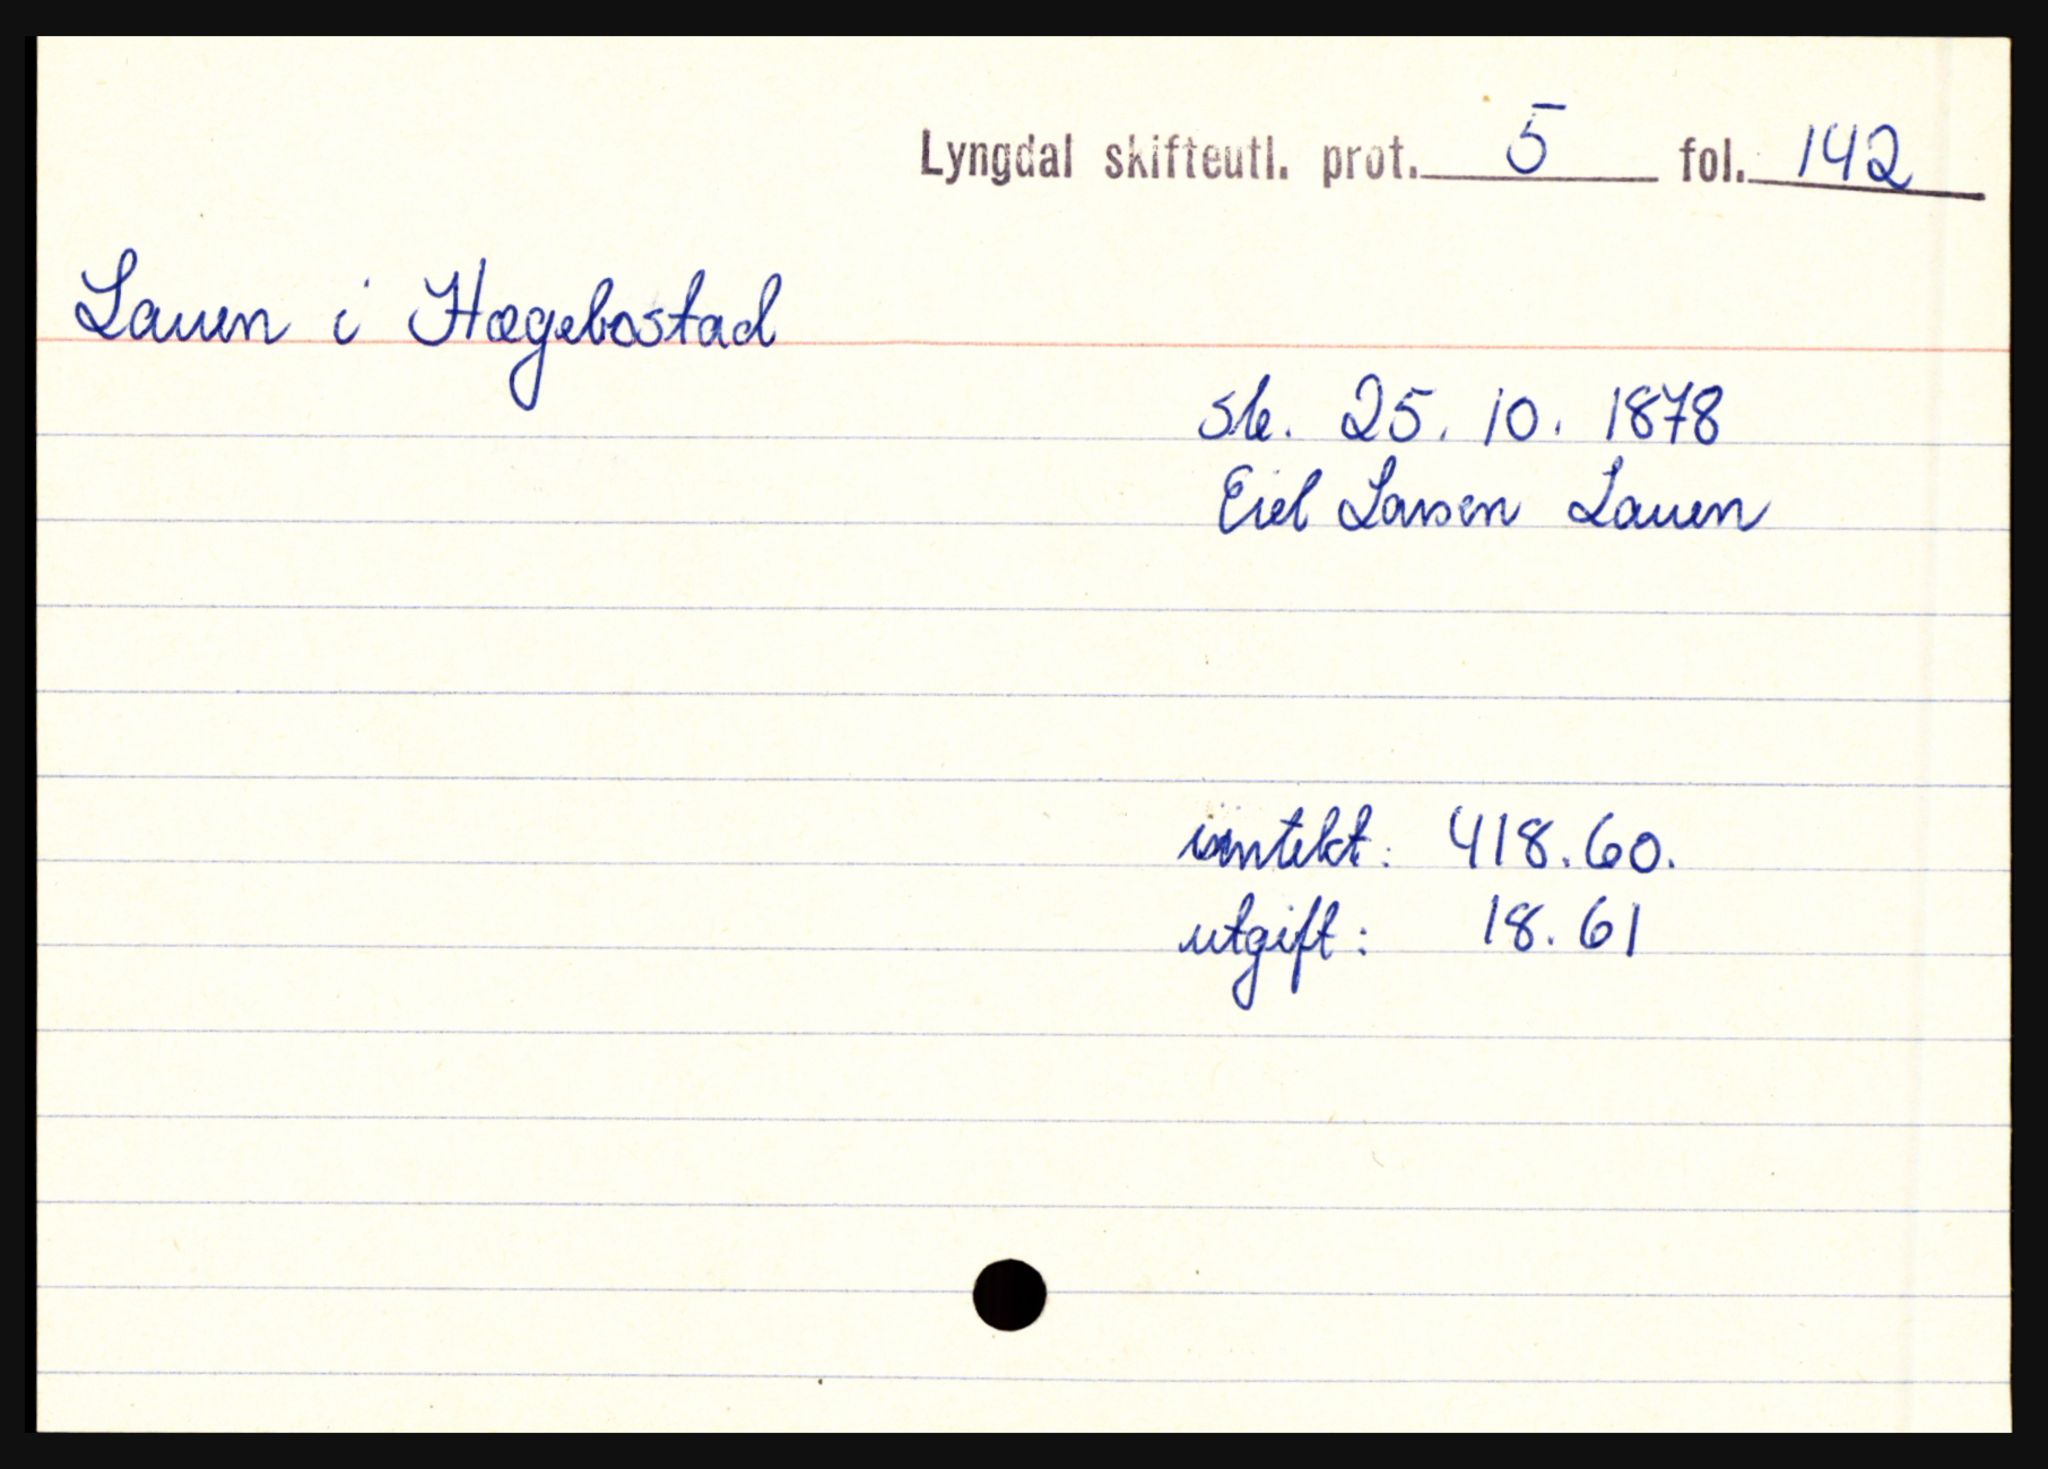 Lyngdal skifteutl. prot. 5 fol. 142
Lauen i Hægebostad
sk. 25. 10. 1878
Eiel Larsen Lauen
inntekt: 418.60.
utgift: 18.61